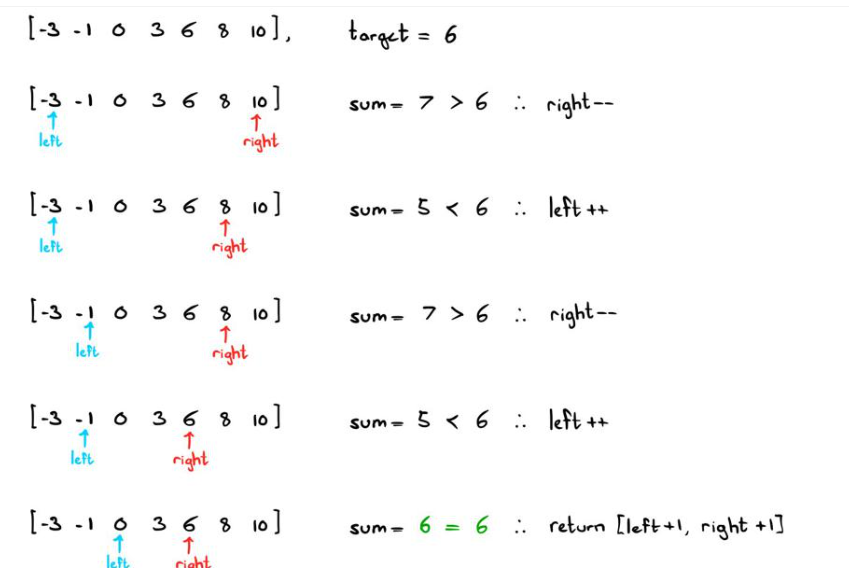 [-3 -1 0 3 6 8 10], target = 6
[-3 -1 0 3 6 8 10] sum = 7 > 6 ∴ right--
↑ ↑
left right
[-3 -1 0 3 6 8 10] sum = 5 < 6 ∴ left ++
↑ ↑
left right
[-3 -1 0 3 6 8 10] sum = 7 > 6 ∴ right--
↑ ↑
left right
[-3 -1 0 3 6 8 10] sum = 5 < 6 ∴ left ++
↑ ↑
left right
[-3 -1 0 3 6 8 10] sum = 6 = 6 ∴ return [left+1, right +1]
↑ ↑
left right